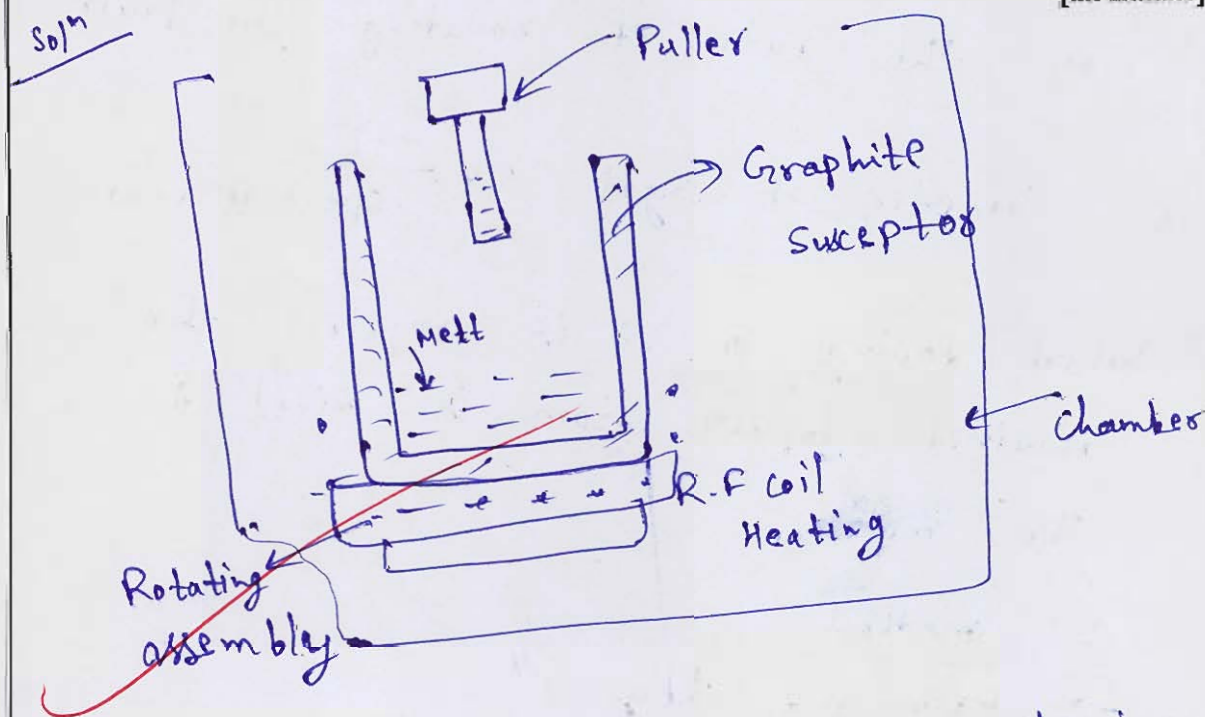 Solⁿ
Puller
Graphite
susceptor
Melt
Chamber
R.F coil
Heating
Rotating
assembly